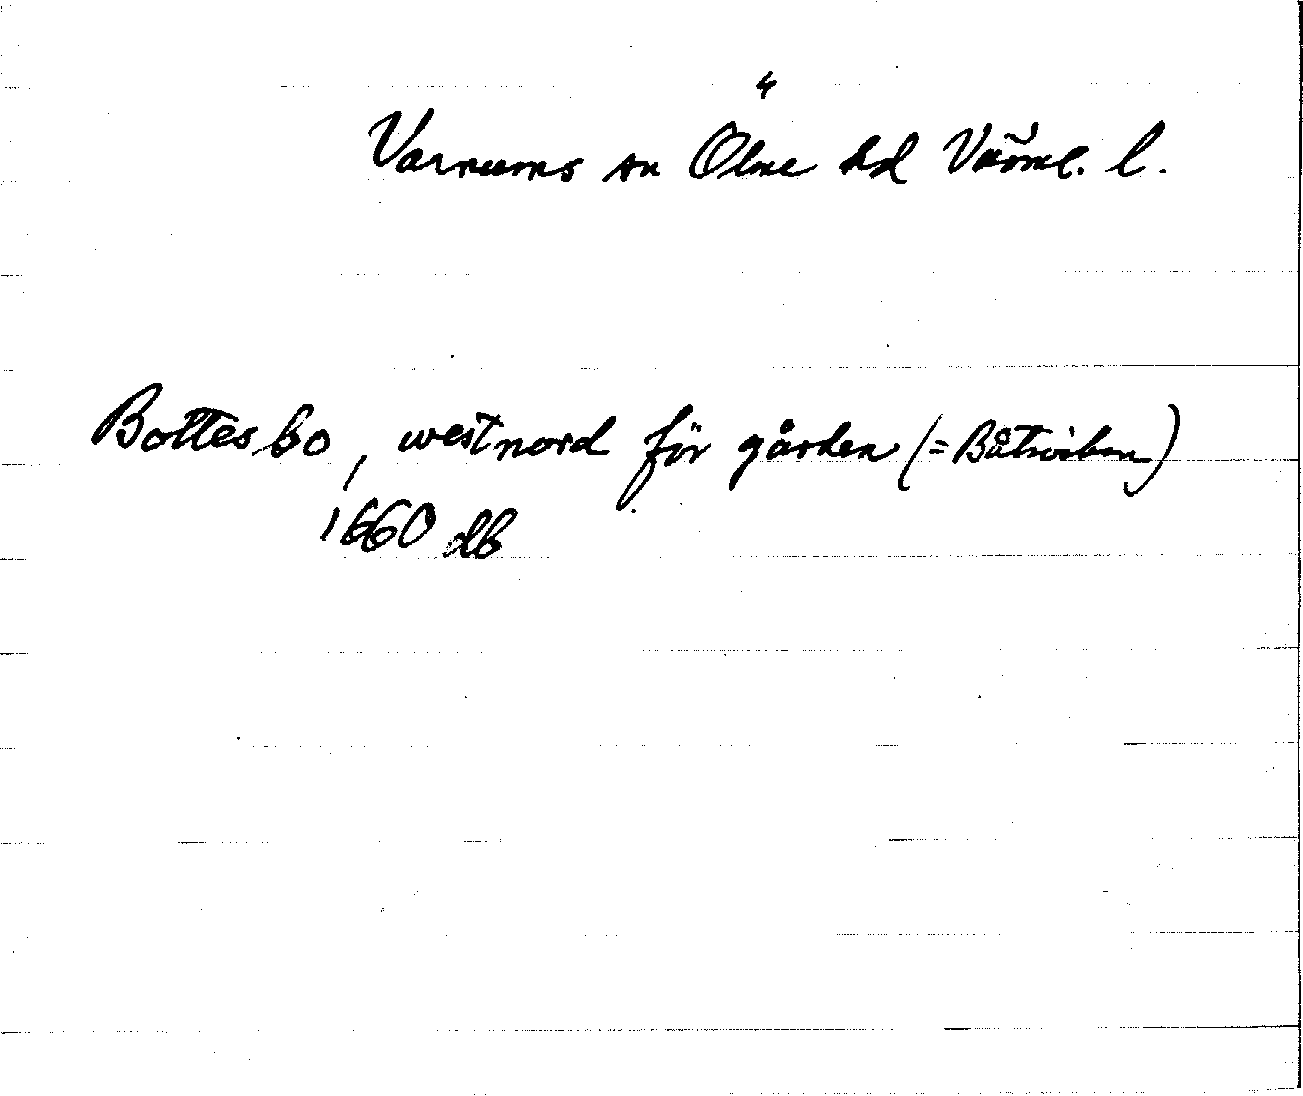 Varnums sn Ölme hd Värml. l.
Bottesbo, westnord för gården (= Båtviken)
1660 db